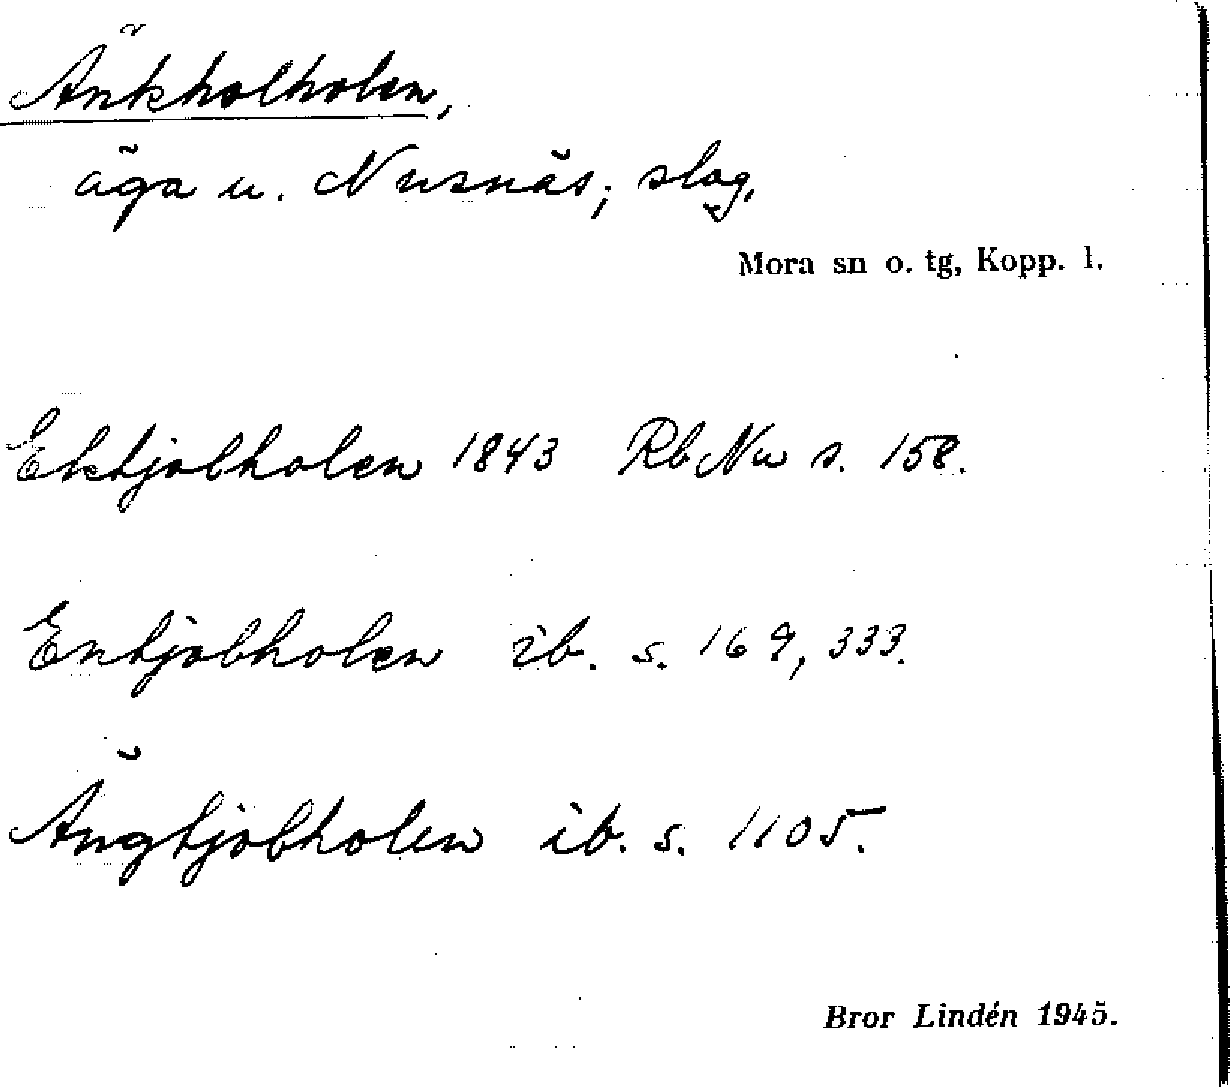 Änkholholen,
äga u. Nusnäs; slog.
Mora sn o. tg, Kopp. l.
Ektjolholen 1843 RbNu s. 158.
Entjolholen ib. s. 169, 333.
Ängtjolholen ib. s. 1105.
Bror Lindén 1945.